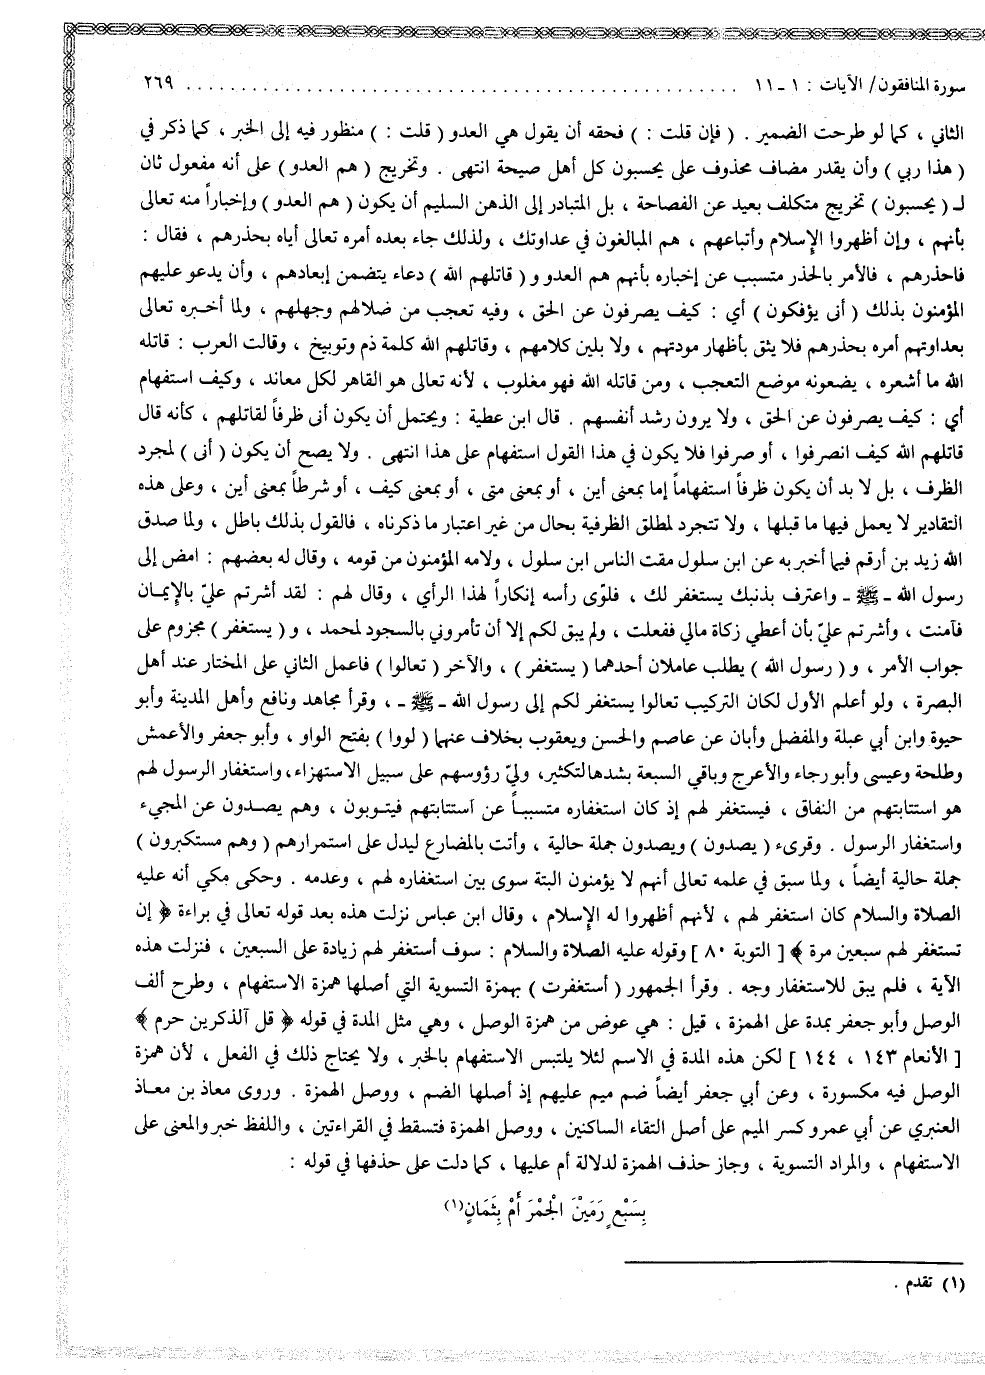 سورة المنافقون/ الآيات : ١ - ١١ ........................................ ٢٦٩
الثاني ، كما لو طرحت الضمير . ( فإن قلت : ) فحقه أن يقول هي العدو ( قلت : ) منظور فيه إلى الخبر ، كما ذكر في
( هذا ربي ) وأن يقدر مضاف محذوف على يحسبون كل أهل صيحة انتهى . وتخريج ( هم العدو ) على أنه مفعول ثان
لـ ( يحسبون ) تخريج متكلف بعيد عن الفصاحة ، بل المتبادر إلى الذهن السليم أن يكون ( هم العدو ) وإخباراً منه تعالى
بأنهم ، وإن أظهروا الإسلام وأتباعهم ، هم المبالغون في عداوتك ، ولذلك جاء بعده أمره تعالى أياه بحذرهم ، فقال :
فاحذرهم ، فالأمر بالحذر متسبب عن إخباره بأنهم هم العدو و ( قاتلهم الله ) دعاء يتضمن إبعادهم ، وأن يدعو عليهم
المؤمنون بذلك ( أنى يؤفكون ) أي : كيف يصرفون عن الحق ، وفيه تعجب من ضلالهم وجهلهم ، ولما أخبره تعالى
بعداوتهم أمره بحذرهم فلا يثق بأظهار مودتهم ، ولا بلين كلامهم ، وقاتلهم الله كلمة ذم وتوبيخ ، وقالت العرب : قاتله
الله ما أشعره ، يضعونه موضع التعجب ، ومن قاتله الله فهو مغلوب ، لأنه تعالى هو القاهر لكل معاند ، وكيف استفهام
أي : كيف يصرفون عن الحق ، ولا يرون رشد أنفسهم . قال ابن عطية : ويحتمل أن يكون أنى ظرفاً لقاتلهم ، كأنه قال
قاتلهم الله كيف انصرفوا ، أو صرفوا فلا يكون في هذا القول استفهام على هذا انتهى . ولا يصح أن يكون ( أنى ) لمجرد
الظرف ، بل لا بد أن يكون ظرفاً استفهاماً إما بمعنى أين ، أو بمعنى متى ، أو بمعنى كيف ، أو شرطاً بمعنى أين ، وعلى هذه
التقادير لا يعمل فيها ما قبلها ، ولا تتجرد لمطلق الظرفية بحال من غير اعتبار ما ذكرناه ، فالقول بذلك باطل ، ولما صدق
الله زيد بن أرقم فيما أخبر به عن ابن سلول مقت الناس ابن سلول ، ولامه المؤمنون من قومه ، وقال له بعضهم : امض إلى
رسول الله ـ ﷺ ـ واعترف بذنبك يستغفر لك ، فلوّى رأسه إنكاراً لهذا الرأي ، وقال لهم : لقد أشرتم عليّ بالإيمان
فآمنت ، وأشرتم عليّ بأن أعطي زكاة مالي ففعلت ، ولم يبق لكم إلا أن تأمروني بالسجود لمحمد ، و ( يستغفر ) مجزوم على
جواب الأمر ، و ( رسول الله ) يطلب عاملان أحدهما ( يستغفر ) ، والآخر ( تعالوا ) فاعمل الثاني على المختار عند أهل
البصرة ، ولو أعلم الأول لكان التركيب تعالوا يستغفر لكم إلى رسول الله ـ ﷺ ـ ، وقرأ مجاهد ونافع وأهل المدينة وأبو
حيوة وابن أبي عبلة والمفضل وأبان عن عاصم والحسن ويعقوب بخلاف عنهما ( لووا ) بفتح الواو ، وأبو جعفر والأعمش
وطلحة وعيسى وأبو رجاء والأعرج وباقي السبعة بشدها لتكثير، وليّ رؤوسهم على سبيل الاستهزاء، واستغفار الرسول لهم
هو استتابتهم من النفاق ، فيستغفر لهم إذ كان استغفاره متسبباً عن استتابتهم فيتوبون ، وهم يصدون عن المجيء
واستغفار الرسول . وقرىء ( يصدون ) ويصدون جملة حالية ، وأتت بالمضارع ليدل على استمرارهم ( وهم مستكبرون )
جملة حالية أيضاً ، ولما سبق في علمه تعالى أنهم لا يؤمنون البتة سوى بين استغفاره لهم ، وعدمه . وحكى مكي أنه عليه
الصلاة والسلام كان استغفر لهم ، لأنهم أظهروا له الإسلام ، وقال ابن عباس نزلت هذه بعد قوله تعالى في براءة ﴿ إن
تستغفر لهم سبعين مرة ﴾ [ التوبة ٨٠ ] وقوله عليه الصلاة والسلام : سوف أستغفر لهم زيادة على السبعين ، فنزلت هذه
الآية ، فلم يبق للاستغفار وجه . وقرأ الجمهور ( أستغفرت ) بهمزة التسوية التي أصلها همزة الاستفهام ، وطرح ألف
الوصل وأبو جعفر بمدة على الهمزة ، قيل : هي عوض من همزة الوصل ، وهي مثل المدة في قوله ﴿ قل آلذكرين حرم ﴾
[ الأنعام ١٤٣ ، ١٤٤ ] لكن هذه المدة في الاسم لئلا يلتبس الاستفهام بالخبر ، ولا يحتاج ذلك في الفعل ، لأن همزة
الوصل فيه مكسورة ، وعن أبي جعفر أيضاً ضم ميم عليهم إذ أصلها الضم ، ووصل الهمزة . وروى معاذ بن معاذ
العنبري عن أبي عمرو كسر الميم على أصل التقاء الساكنين ، ووصل الهمزة فتسقط في القراءتين ، واللفظ خبر والمعنى على
الاستفهام ، والمراد التسوية ، وجاز حذف الهمزة لدلالة أم عليها ، كما دلت على حذفها في قوله :
بِسَبْعٍ رَمَيْنَ الْجَمْرَ أَمْ بِثَمَانٍ(١)
(١) تقدم .